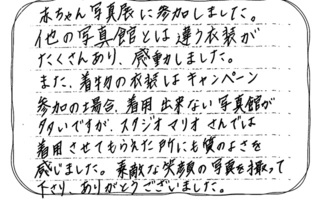 赤ちゃん写真展に参加しました。
他の写真館とは違う衣装が
たくさんあり、感動しました。
また、着物の衣装はキャンペーン
参加の場合、着用出来ない写真館が
多いですが、スタジオマリオさんでは
着用させてもらえた所にも質のよさを
感じました。素敵な笑顔の写真を撮って
下さり、ありがとうございました。